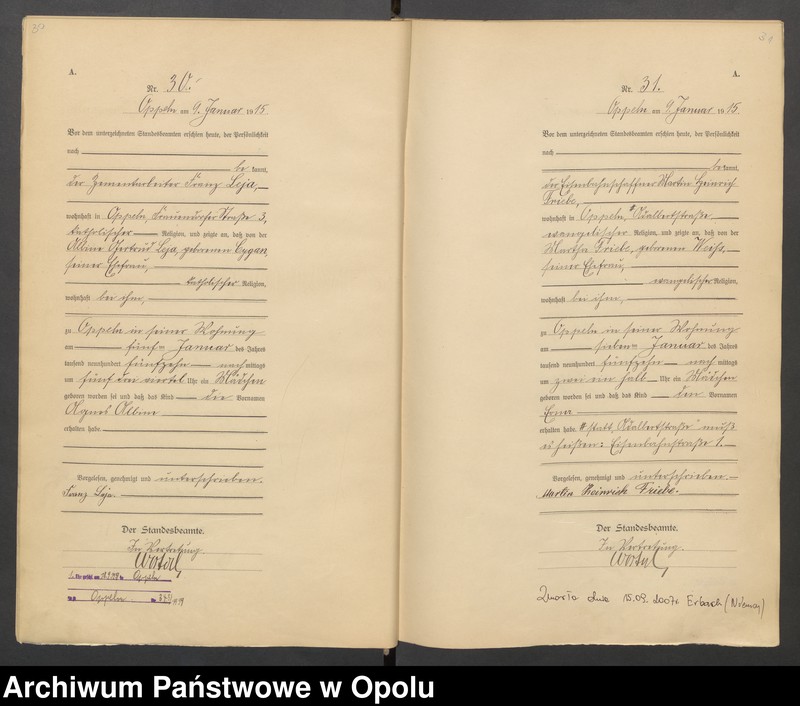 A.
Nr. 30.
Oppeln am 9. Januar 1915
Vor dem unterzeichneten Standesbeamten erschien heute, der Persönlichkeit
nach
be kannt,
der Zementarbeiter Franz Leja,
wohnhaft in Oppeln, Straße 3,
katholischer Religion, und zeigte an, daß von der
Albine Gertrud Leja, geborenen Cygan,
seiner Ehefrau,
katholischer Religion,
wohnhaft bei ihm,
zu Oppeln in seiner Wohnung
am fünften Januar des Jahres
tausend neunhundert fünfzehn nachmittags
um fünf ein viertel Uhr ein Mädchen
geboren worden sei und daß das Kind den Vornamen
Agnes Albine
erhalten habe.
Vorgelesen, genehmigt und unterschrieben.
Franz Leja.
Der Standesbeamte.
In Vertretung
Oppeln
Oppeln
31
A.
Nr. 31.
Oppeln am 9. Januar 1915
Vor dem unterzeichneten Standesbeamten erschien heute, der Persönlichkeit
nach
be kannt,
der Eisenbahnschaffner Martin Heinrich
Friebe,
wohnhaft in Oppeln, Adalbertstraße
evangelischer Religion, und zeigte an, daß von der
Martha Friebe, geborenen Weiß,
seiner Ehefrau,
evangelischer Religion,
wohnhaft bei ihm,
zu Oppeln in seiner Wohnung
am siebenten Januar des Jahres
tausend neunhundert fünfzehn nachmittags
um zwei ein halb Uhr ein Mädchen
geboren worden sei und daß das Kind den Vornamen
Erna
erhalten habe. statt „Adalbertstraße" muß
es heißen: Eisenbahnstraße 1.
Vorgelesen, genehmigt und unterschrieben.
Martin Heinrich Friebe.
Der Standesbeamte.
In Vertretung.
Zmarła dnia 15.09.2007r. Erbach (Niemcy)
Archiwum Państwowe w Opolu